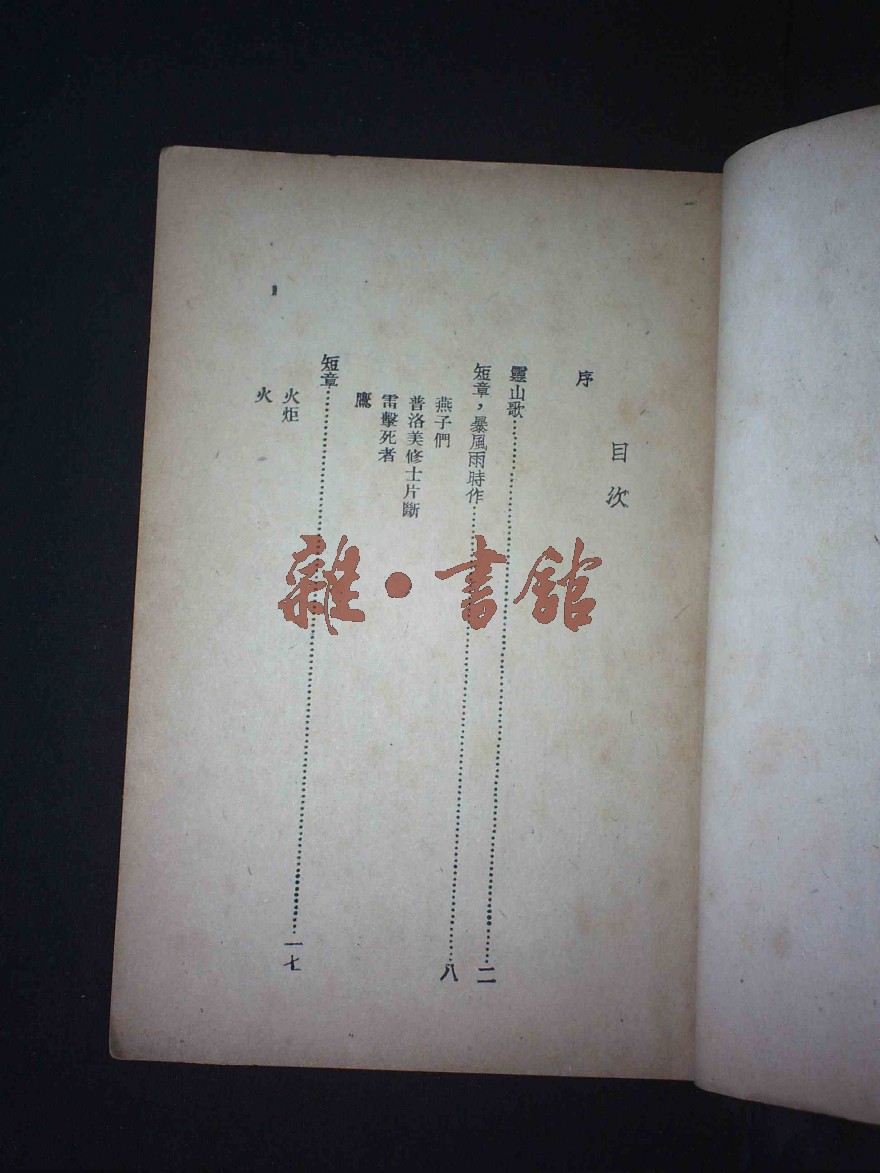 目次
序
靈山歌……二
短章，暴風雨時作……八
燕子們
普洛美修士片斷
雷擊死者
鷹
短章……一七
火炬
火
雜·書館